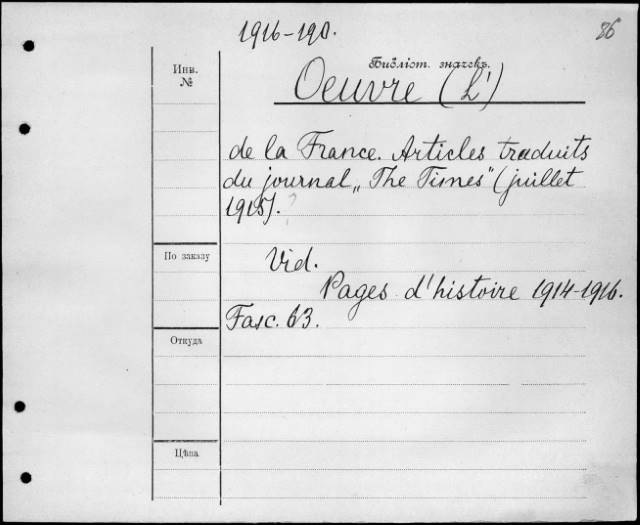 1916-190.
86
Инв.
№
Библіот. значекъ.
Oeuvre (L')
de la France. Articles traduits
du journal „The Times" (juillet
1915). ?
По заказу
Vid.
Pages d'histoire 1914-1916.
Fasc. 63.
Откуда
Цѣна